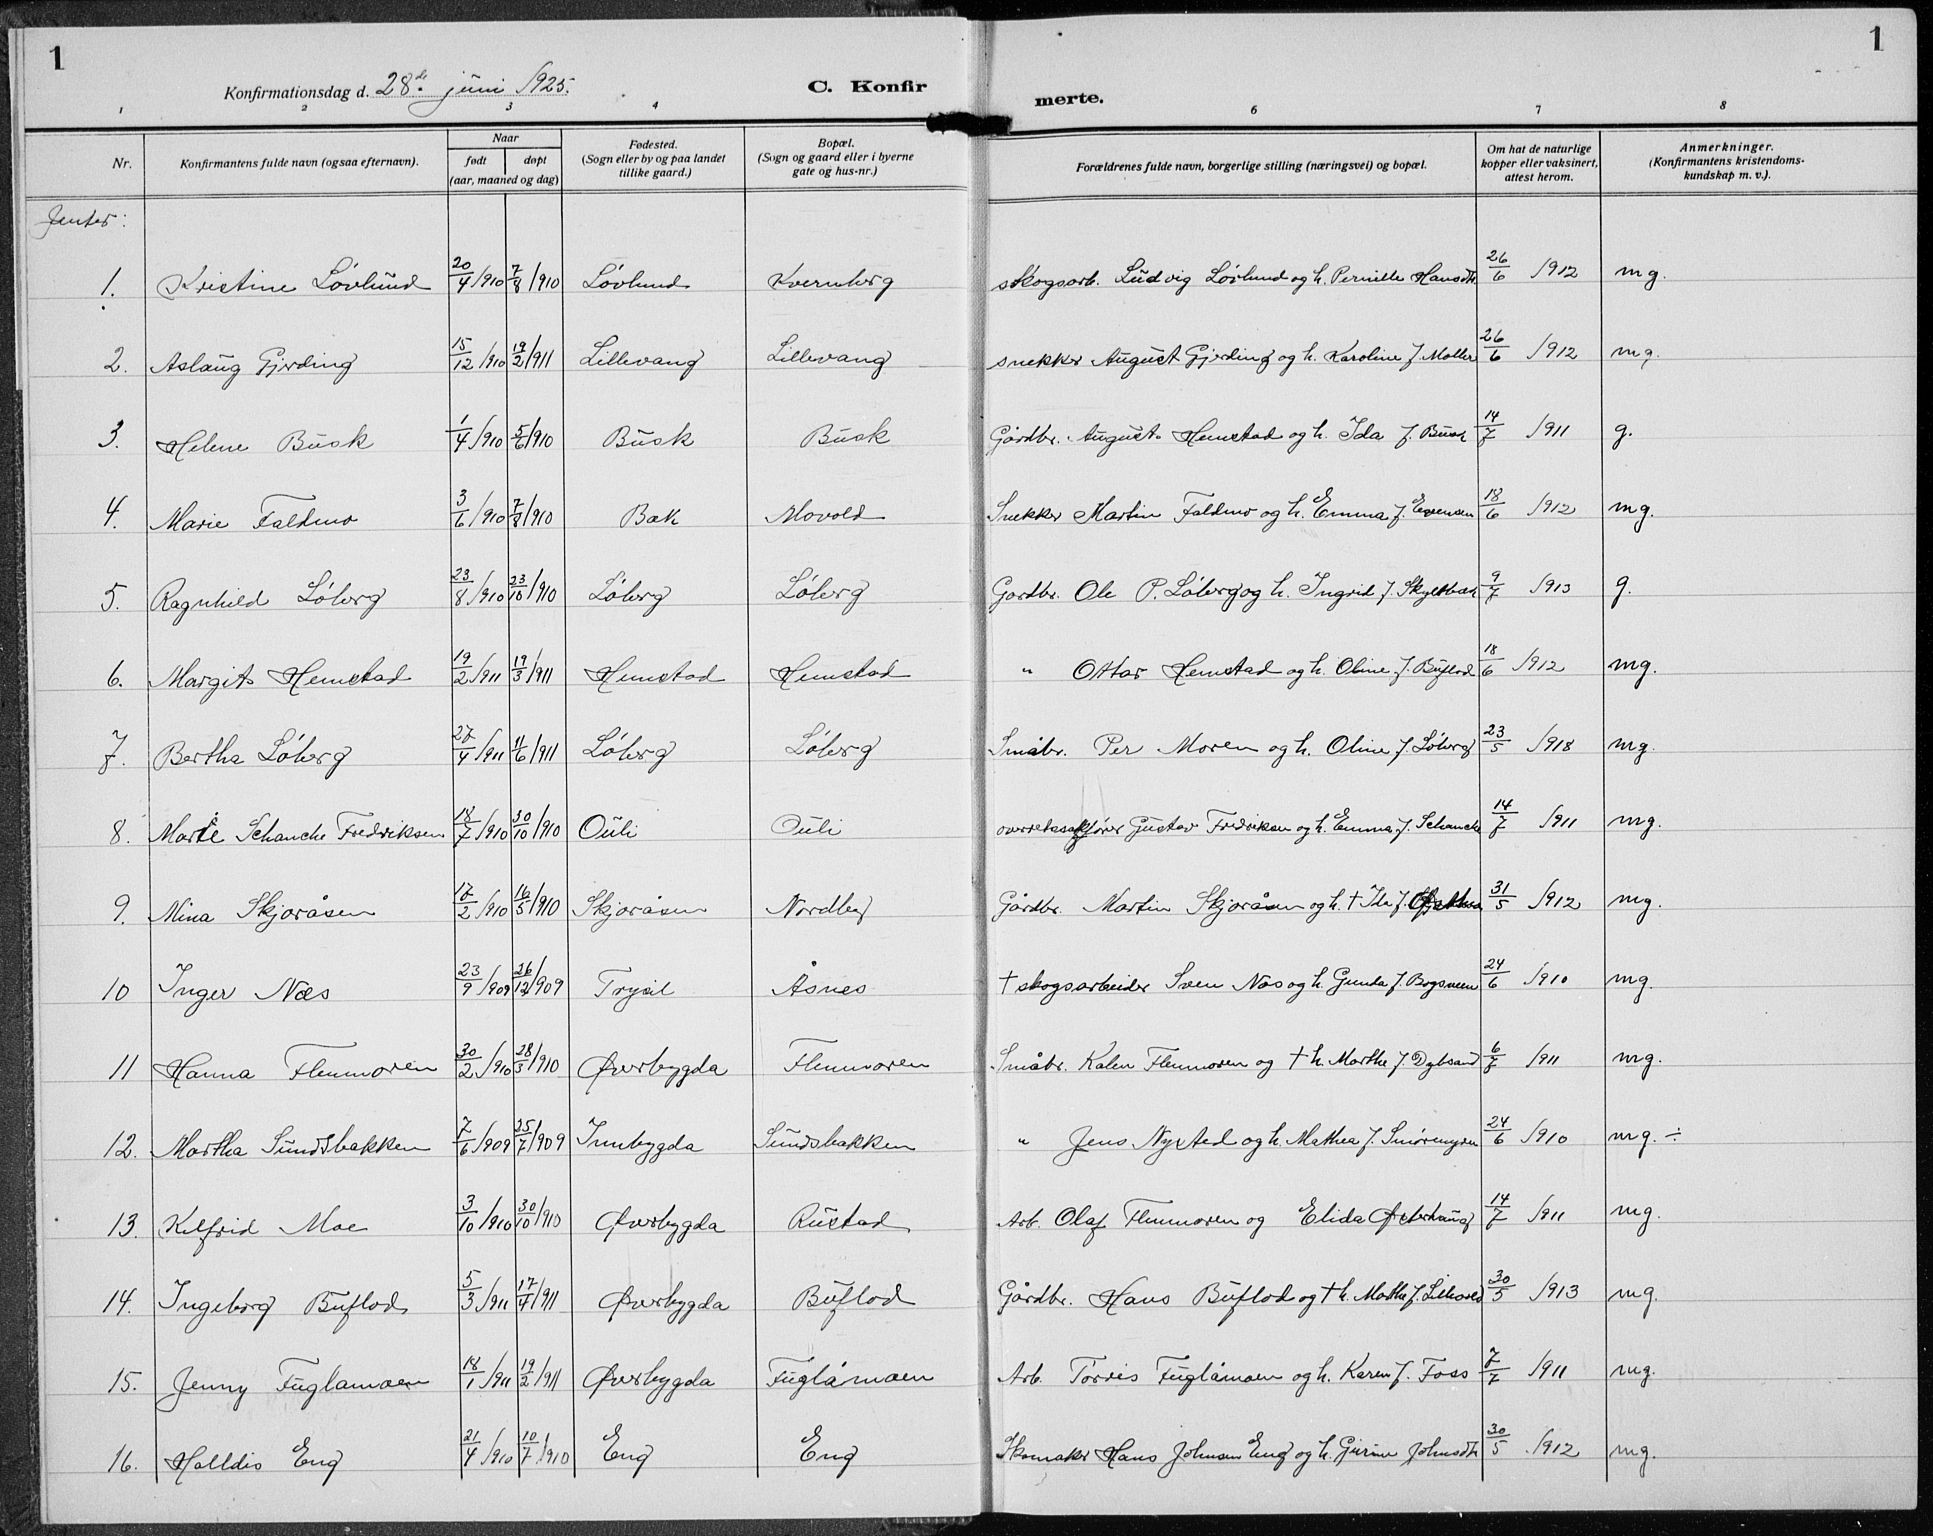 1
1
Konfirmationsdag d. 28de juni 1925.
C. Konfir
merte.
1 2 3 4 6 7 8
Nr. Konfirmantens fulde navn (ogsaa efternavn). Naar født døpt (aar, maaned og dag) Fødested. (Sogn eller by og paa landet tillike gaard.) Bopæl. (Sogn og gaard eller i byerne gate og hus-nr.) Forældrenes fulde navn, borgerlige stilling (næringsvei) og bopæl. Om hat de naturlige kopper eller vaksinert, attest herom. Anmerkninger. (Konfirmantens kristendoms-kundskap m. v.).
Jenter:
1. Kristine Løvlund 20/4 1910 7/8 1910 Løvlund Kvernberg skogsarb. Ludvig Løvlund og h. Pernille Hansdtr. 26/6 1912 mg.
2. Aslaug Gjerding 15/12 1910 19/2 1911 Lillevang Lillevang snekker August Gjerding og h. Karoline f. Møller 26/6 1912 mg.
3. Helene Busk 1/4 1910 5/6 1910 Busk Busk Gårdbr. August Hemstad og h. Ida f. Busk 14/7 1911 g.
4. Marie Faldmo 3/6 1910 7/8 1910 Bæk Movold Snekker Martin Faldmo og h. Emma f. Evensen 18/6 1912 mg.
5. Ragnhild Løberg 23/8 1910 23/10 1910 Løberg Løberg Gårdbr. Ole P. Løberg og h. Ingrid f. Skyltbæk 9/7 1913 g.
6. Margit Hemstad 19/2 1911 19/3 1911 Hemstad Hemstad " Ottar Hemstad og h. Oline f. Buflod 18/6 1912 mg.
7. Bertha Løberg 27/4 1911 11/6 1911 Løberg Løberg Småbr. Per Moren og h. Oline f. Løberg 23/5 1918 mg.
8. Marie Schanche Fredriksen 18/7 1910 30/10 1910 Ouli Ouli overretssakfører Gustav Fredriksen og h. Emma f. Schanche 14/7 1911 mg.
9. Mina Skjøråsen 17/2 1910 16/5 1910 Skjøråsen Nordby Gårdbr. Martin Skjøråsen og h. † Ida f. 31/5 1912 mg.
10 Inger Næs 23/9 1909 26/12 1909 Trysil Åsnes † skogsarbeider Sven Næs og h. Gunda f. Bogsveen 24/6 1910 mg.
11 Hanna Flenmoren 30/2 1910 28/3 1910 Øverbygda Flenmoren Småbr. Kalen Flenmoren og † h. Marthe f. Dybsand 6/7 1911 mg.
12. Martha Sundsbakken 7/6 1909 25/7 1909 Innbygda Sundsbakken " Jens Nysted og h. Mathea f. Smøremyren 24/6 1910 mg. ÷
13. Kelfrid Moe 3/10 1910 30/10 1910 Øverbygda Rustad Arb. Olaf Flenmoren og Elida Østerhaug 14/7 1911 mg.
14. Ingeborg Buflod 5/3 1911 17/4 1911 Øverbygda Buflod Gårdbr. Hans Buflod og † h. Marthe f. 30/5 1913 mg.
15. Jenny Fuglåmoen 18/1 1911 19/2 1911 Øverbygda Fuglåmoen Arb. Torris Fuglåmoen og h. Karen f. Foss 7/7 1911 mg.
16. Halldis Eng 21/4 1910 10/7 1910 Eng Eng Skomaker Hans Johnsen Eng og h. Gurine Johnsdtr. 30/5 1912 mg.